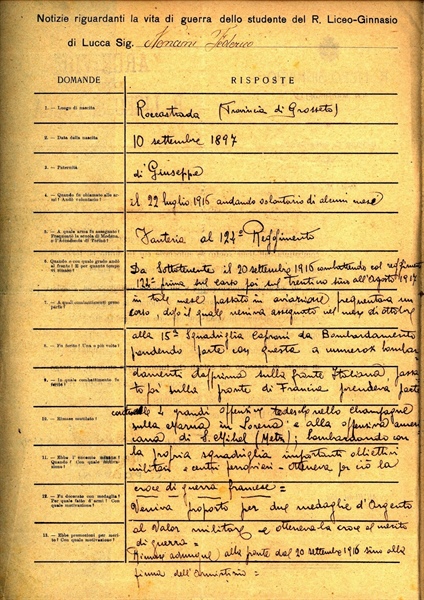 Notizie riguardanti la vita di guerra dello studente del R. Liceo-Ginnasio
di Lucca Sig. Federico
DOMANDE RISPOSTE
1. — Luogo di nascita Roccastrada (Provincia di Grosseto)
2. — Data della nascita 10 settembre 1897
3. — Paternità di Giuseppe
4. — Quando fu chiamato alle armi? Andò volontario? il 22 luglio 1916 andando volontario di alcuni mesi
5. — A quale arma fu assegnato? Fanteria al 122º Reggimento
6. — Quando e con quale grado andò al fronte? E per quanto tempo vi rimase? Da Sottotenente il 20 settembre 1916 combattendo col reggimento
122º prima sul carso poi sul trentino sino all'Agosto 1917
7. — A quali combattimenti prese parte? in tale mese passato in aviazione frequentava un
corso, dopo il quale veniva assegnato nel mese di ottobre
alla 15ª Squadriglia Caproni da Bombardamento
8. — Fu ferito? Una o più volte? prendendo parte con questa a numerosi bombar
damenti dapprima sulla fronte Italiana passa
9. — In quale combattimento fu ferito? to poi sulla fronte di Francia prendeva parte
4 grandi offensive tedesche nello champagne
10. — Rimase mutilato? sulla Marna in Lorena e alla offensiva ameri
cana di S. Mihel (Metz); bombardando con
11. — Ebbe encomi? Quando? Con quale motivazione? la propria squadriglia importanti obiettivi
militari e centri ferroviari - otteneva per ciò la
12. — Fu decorato con medaglia? Per quale fatto d'armi? Con quale motivazione? croce di guerra francese =
Veniva proposto per due medaglie d'Argento
al Valor militare e otteneva la croce al merito
13. — Ebbe promozioni per merito? Con quale motivazione? di guerra =
Rimase adunque alla fronte dal 20 settembre 1916 sino alla
firma dell'Armistizio =